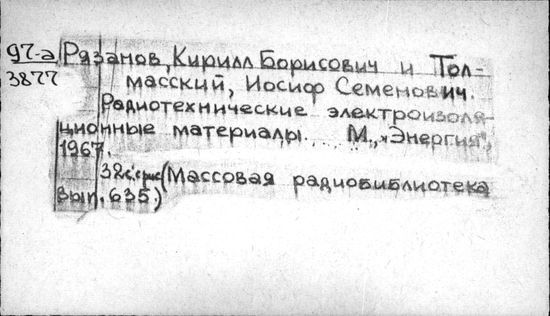 97-а Рязанов, Кирилл Борисович и Тол-
3877 масский, Иосиф Семенович.
Радиотехнические электроизоля-
ционные материалы. М., "Энергия",
1967.
32с. с рис. (Массовая радиобиблиотека
Вып. 635.)